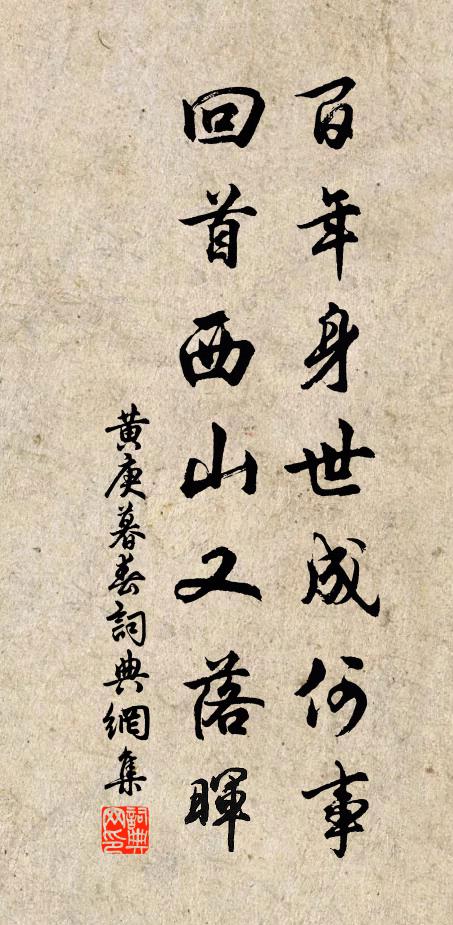 百年身世成何事
回首西山又落暉
黃庚暮春詞典網集
詞典网印